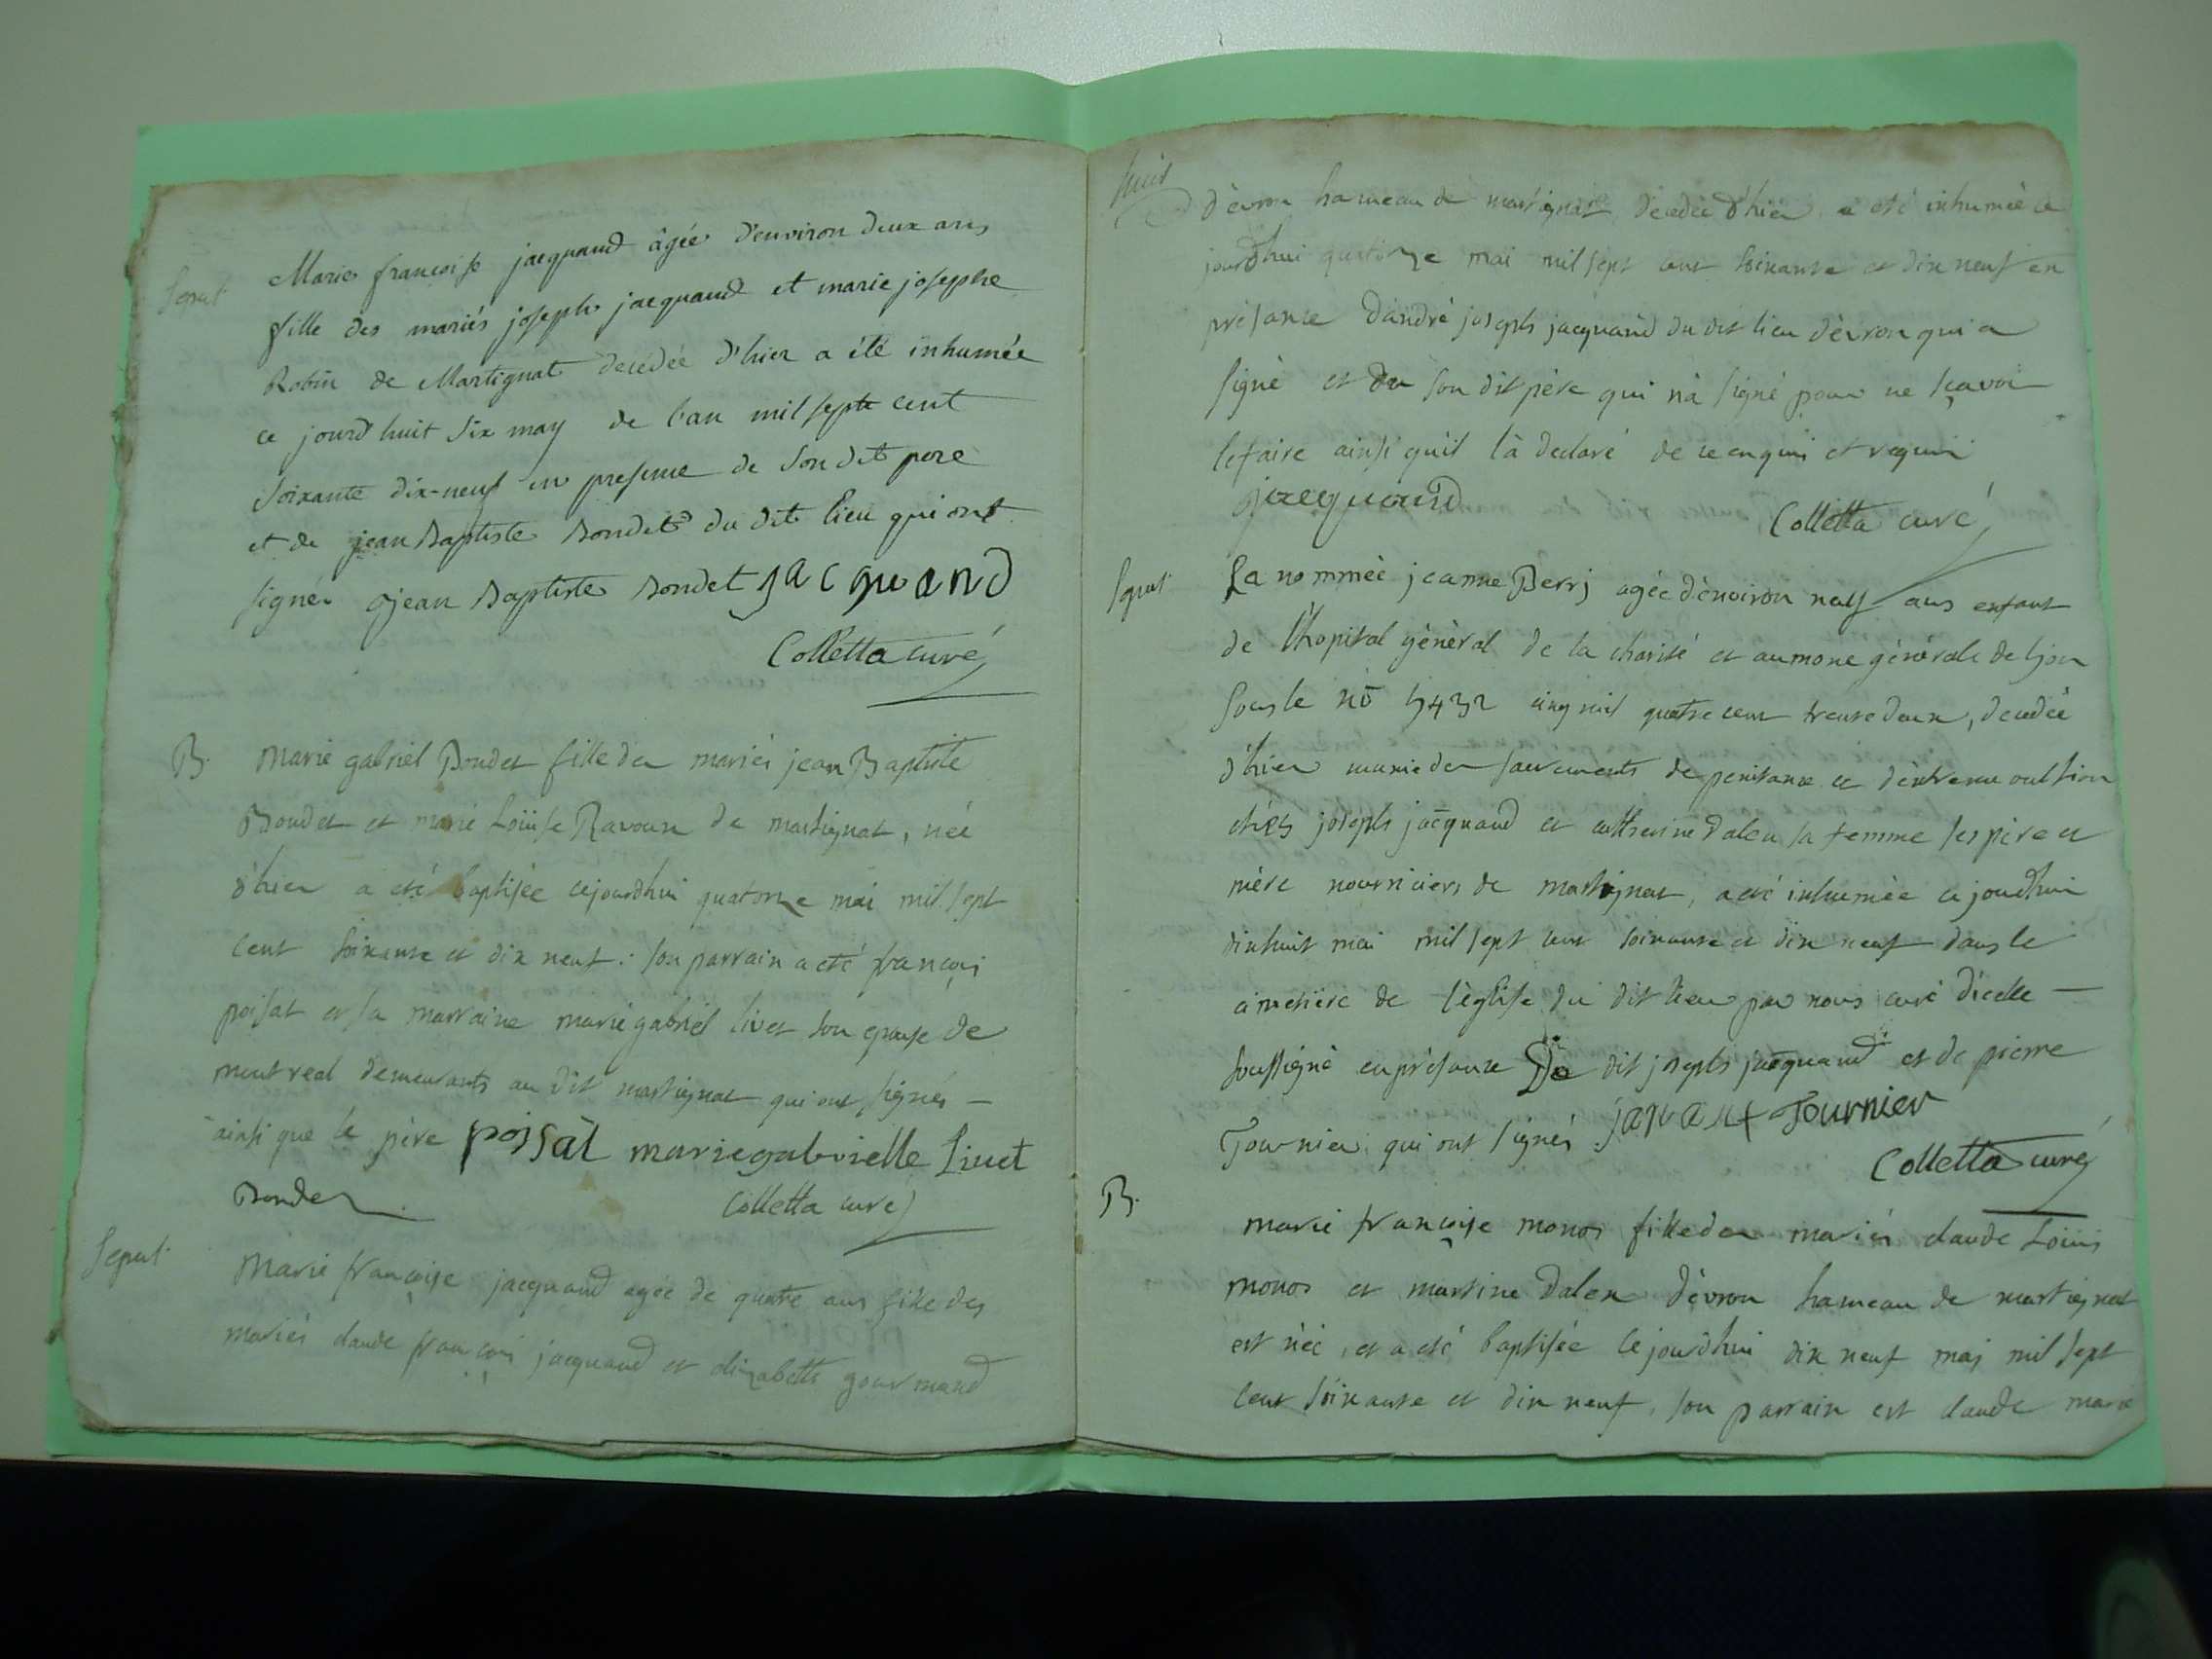 Sepult
Marie françoise jacquand âgée d'environ deux ans
fille des mariés joseph jacquand et marie josephe
Robin de Martignat decedée d'hier a été inhumée
ce jourd'huit six may de l'an mil septe cent
soixante dix-neuf en presence de son dit pere
et de jean Baptiste Bondet du dit lieu qui ont
signés jean Baptiste Bondet jacquand
Colletta curé
B. Marie gabriel Bondet fille des mariés jean Baptiste
Bondet et marie Loüise Ravoux de martignat, née
d'hier a eté baptisée cejourdhui quatorze mai mil sept
cent soixante et dix neuf : son parrain a eté françois
poisat et sa marraine marie gabriel livet son epouse de
montreal demeurants au dit martignat qui ont signés –
ainsi que le père poisat mariegabrielle Livet
Bondet Colletta curé
Sepult
Marie françoise jacquand agée de quatre ans fille des
mariés claude françois jacquand et elizabeth gourmand
huit
d'èvron hameau de martignat decedée d'hier a eté inhumèe ce
jourdhui quatorze mai mil sept cent soixante et dix neuf en
présance d'andré joseph jacquand du dit lieu d'èvron qui a
signé et du son dit père qui n'a signé pour ne sçavoir
le faire ainsi qu'il l'à declaré de ce enquis et requis
jacquand
Colletta curé
Sepult
La nommée jeanne Berrj agée d'environ neuf ans enfant
de l'hopital général de la charité et aumone générale de lyon
sous le no 5432 cinq mil quatre cent trente deux, decedée
d'hier munie des sacrements de penitance et d'extreme onction
chés joseph jacquand et catherine Dalex sa femme ses père et
mère nourriciers de martignat, a eté inhumée ce jourdhui
dixhuit mai mil sept cent soixante et dix neuf dans le
cimetière de l'église du dit lieu par nous curé d'icelle –
soussigné en présance De dit joseph jacquand et de pierre
Tournier qui ont signés Tournier
Colletta curé
B.
marie françoise monos fille des mariés claude Loüis
monos et martine Dalex d'èvron hameau de martignat
est née, et a eté baptisée cejourdhui dix neuf maj mil sept
cent soixante et dix neuf, son parrain est claude marie